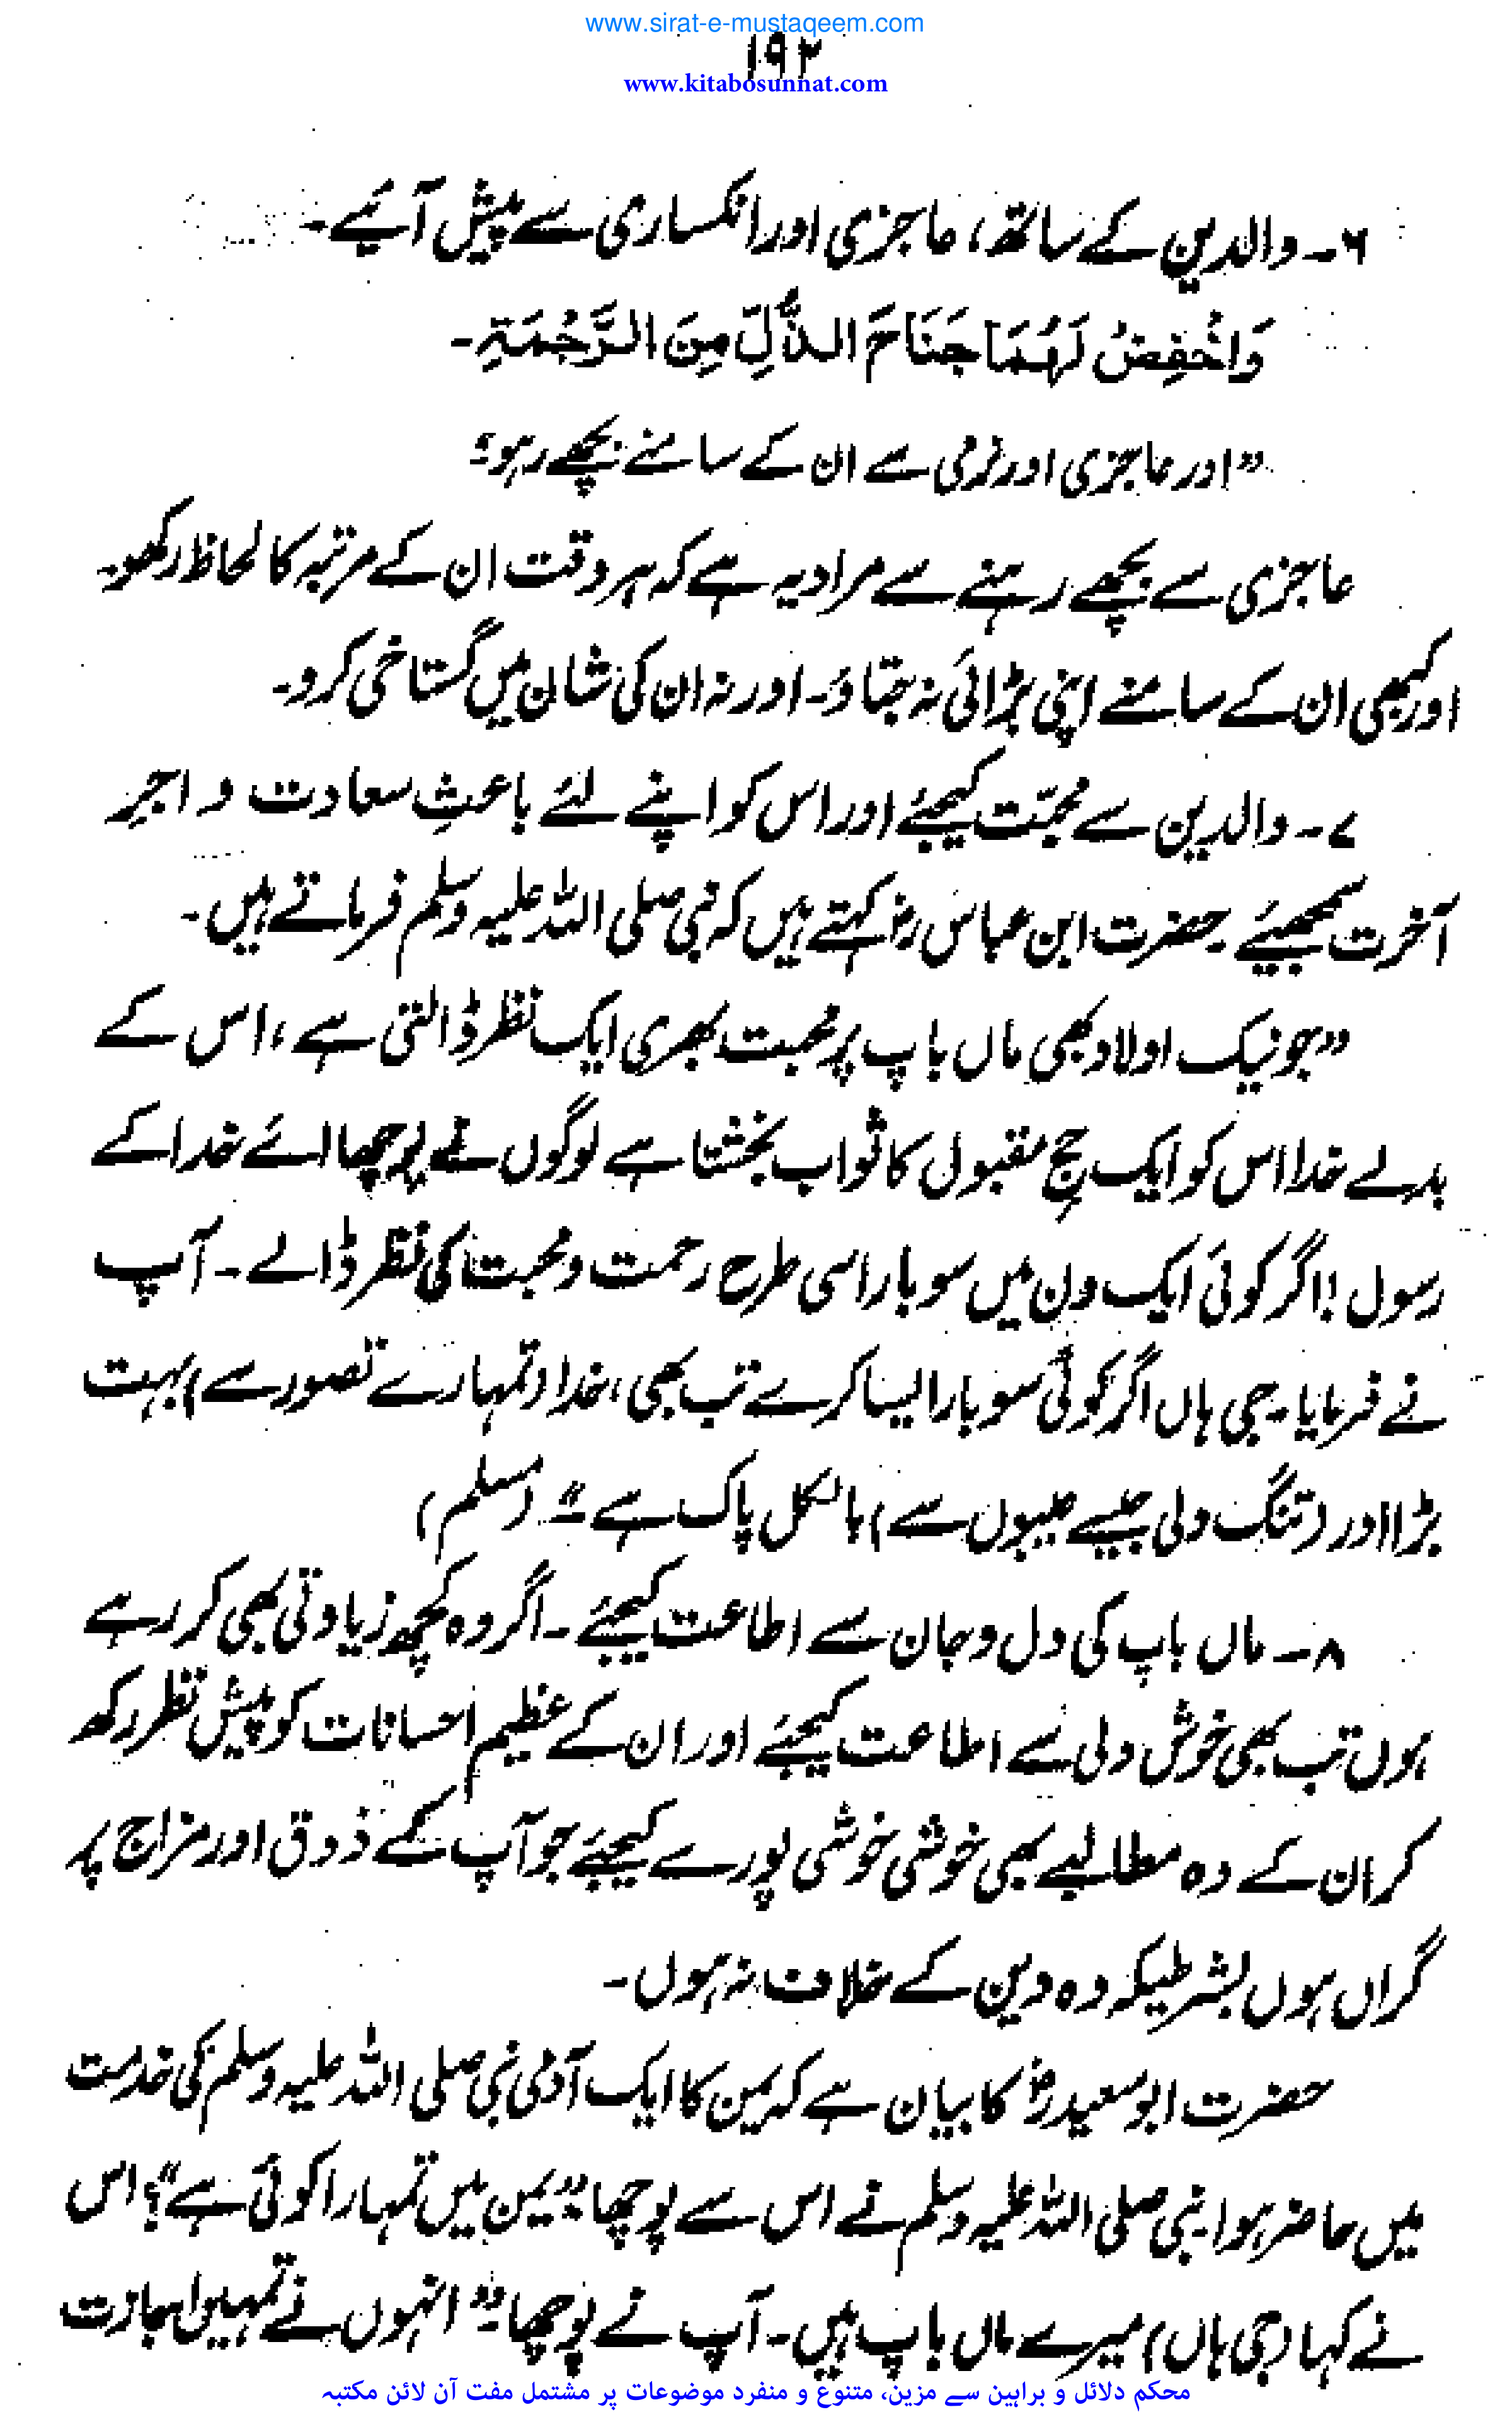 www.sirat-e-mustaqeem.com
۱۹۲
www.kitabosunnat.com
۶۔ والدین کے ساتھ، عاجزی اور انکساری سے پیش آئیے۔
وَاخْفِضْ لَهُمَا جَنَاحَ الذُّلِّ مِنَ الرَّحْمَةِ۔
”اور عاجزی اور نرمی سے ان کے سامنے بچھے رہو“
عاجزی سے بچھے رہنے سے مراد یہ ہے کہ ہر وقت ان کے مرتبہ کا لحاظ رکھو۔
اور کبھی ان کے سامنے اپنی بڑائی نہ جتاؤ۔ اور نہ ان کی شان میں گستاخی کرو۔
۷۔ والدین سے محبّت کیجئے اور اس کو اپنے لئے باعثِ سعادت و اجرِ
آخرت سمجھئیے۔ حضرت ابن عباس رض کہتے ہیں کہ نبی صلی اللہ علیہ وسلم فرماتے ہیں۔
”جو نیک اولاد بھی ماں باپ پر محبت بھری ایک نظر ڈالتی ہے، اس کے
بدلے خدا اس کو ایک حج مقبول کا ثواب بخشتا ہے لوگوں نے پوچھا اے خدا کے
رسول! اگر کوئی ایک دن میں سو بار اسی طرح رحمت و محبت کی نظر ڈالے۔ آپ
نے فرمایا۔ جی ہاں اگر کوئی سو بار ایسا کرے تب بھی، خدا (تمہارے تصور سے) بہت
بڑا اور (تنگ دلی جیسے عیبوں سے) بالکل پاک ہے“۔ (مسلم)
۸۔ ماں باپ کی دل و جان سے اطاعت کیجئے۔ اگر وہ کچھ زیادتی بھی کر رہے
ہوں تب بھی خوش دلی سے اطاعت کیجئے اور ان کے عظیم احسانات کو پیش نظر رکھ
کر ان کے وہ مطالبے بھی خوشی خوشی پورے کیجئے جو آپ کے ذوق اور مزاج پر
گراں ہوں بشرطیکہ وہ دین کے خلاف نہ ہوں۔
حضرت ابو سعید رض کا بیان ہے کہ یمن کا ایک آدمی نبی صلی اللہ علیہ وسلم کی خدمت
میں حاضر ہوا۔ نبی صلی اللہ علیہ وسلم نے اس سے پوچھا ”یمن میں تمہارا کوئی ہے“؟ اس
نے کہا (جی ہاں) میرے ماں باپ ہیں۔ آپ نے پوچھا۔ ”انہوں نے تمہیں اجازت
محکم دلائل و براہین سے مزین، متنوع و منفرد موضوعات پر مشتمل مفت آن لائن مکتبہ